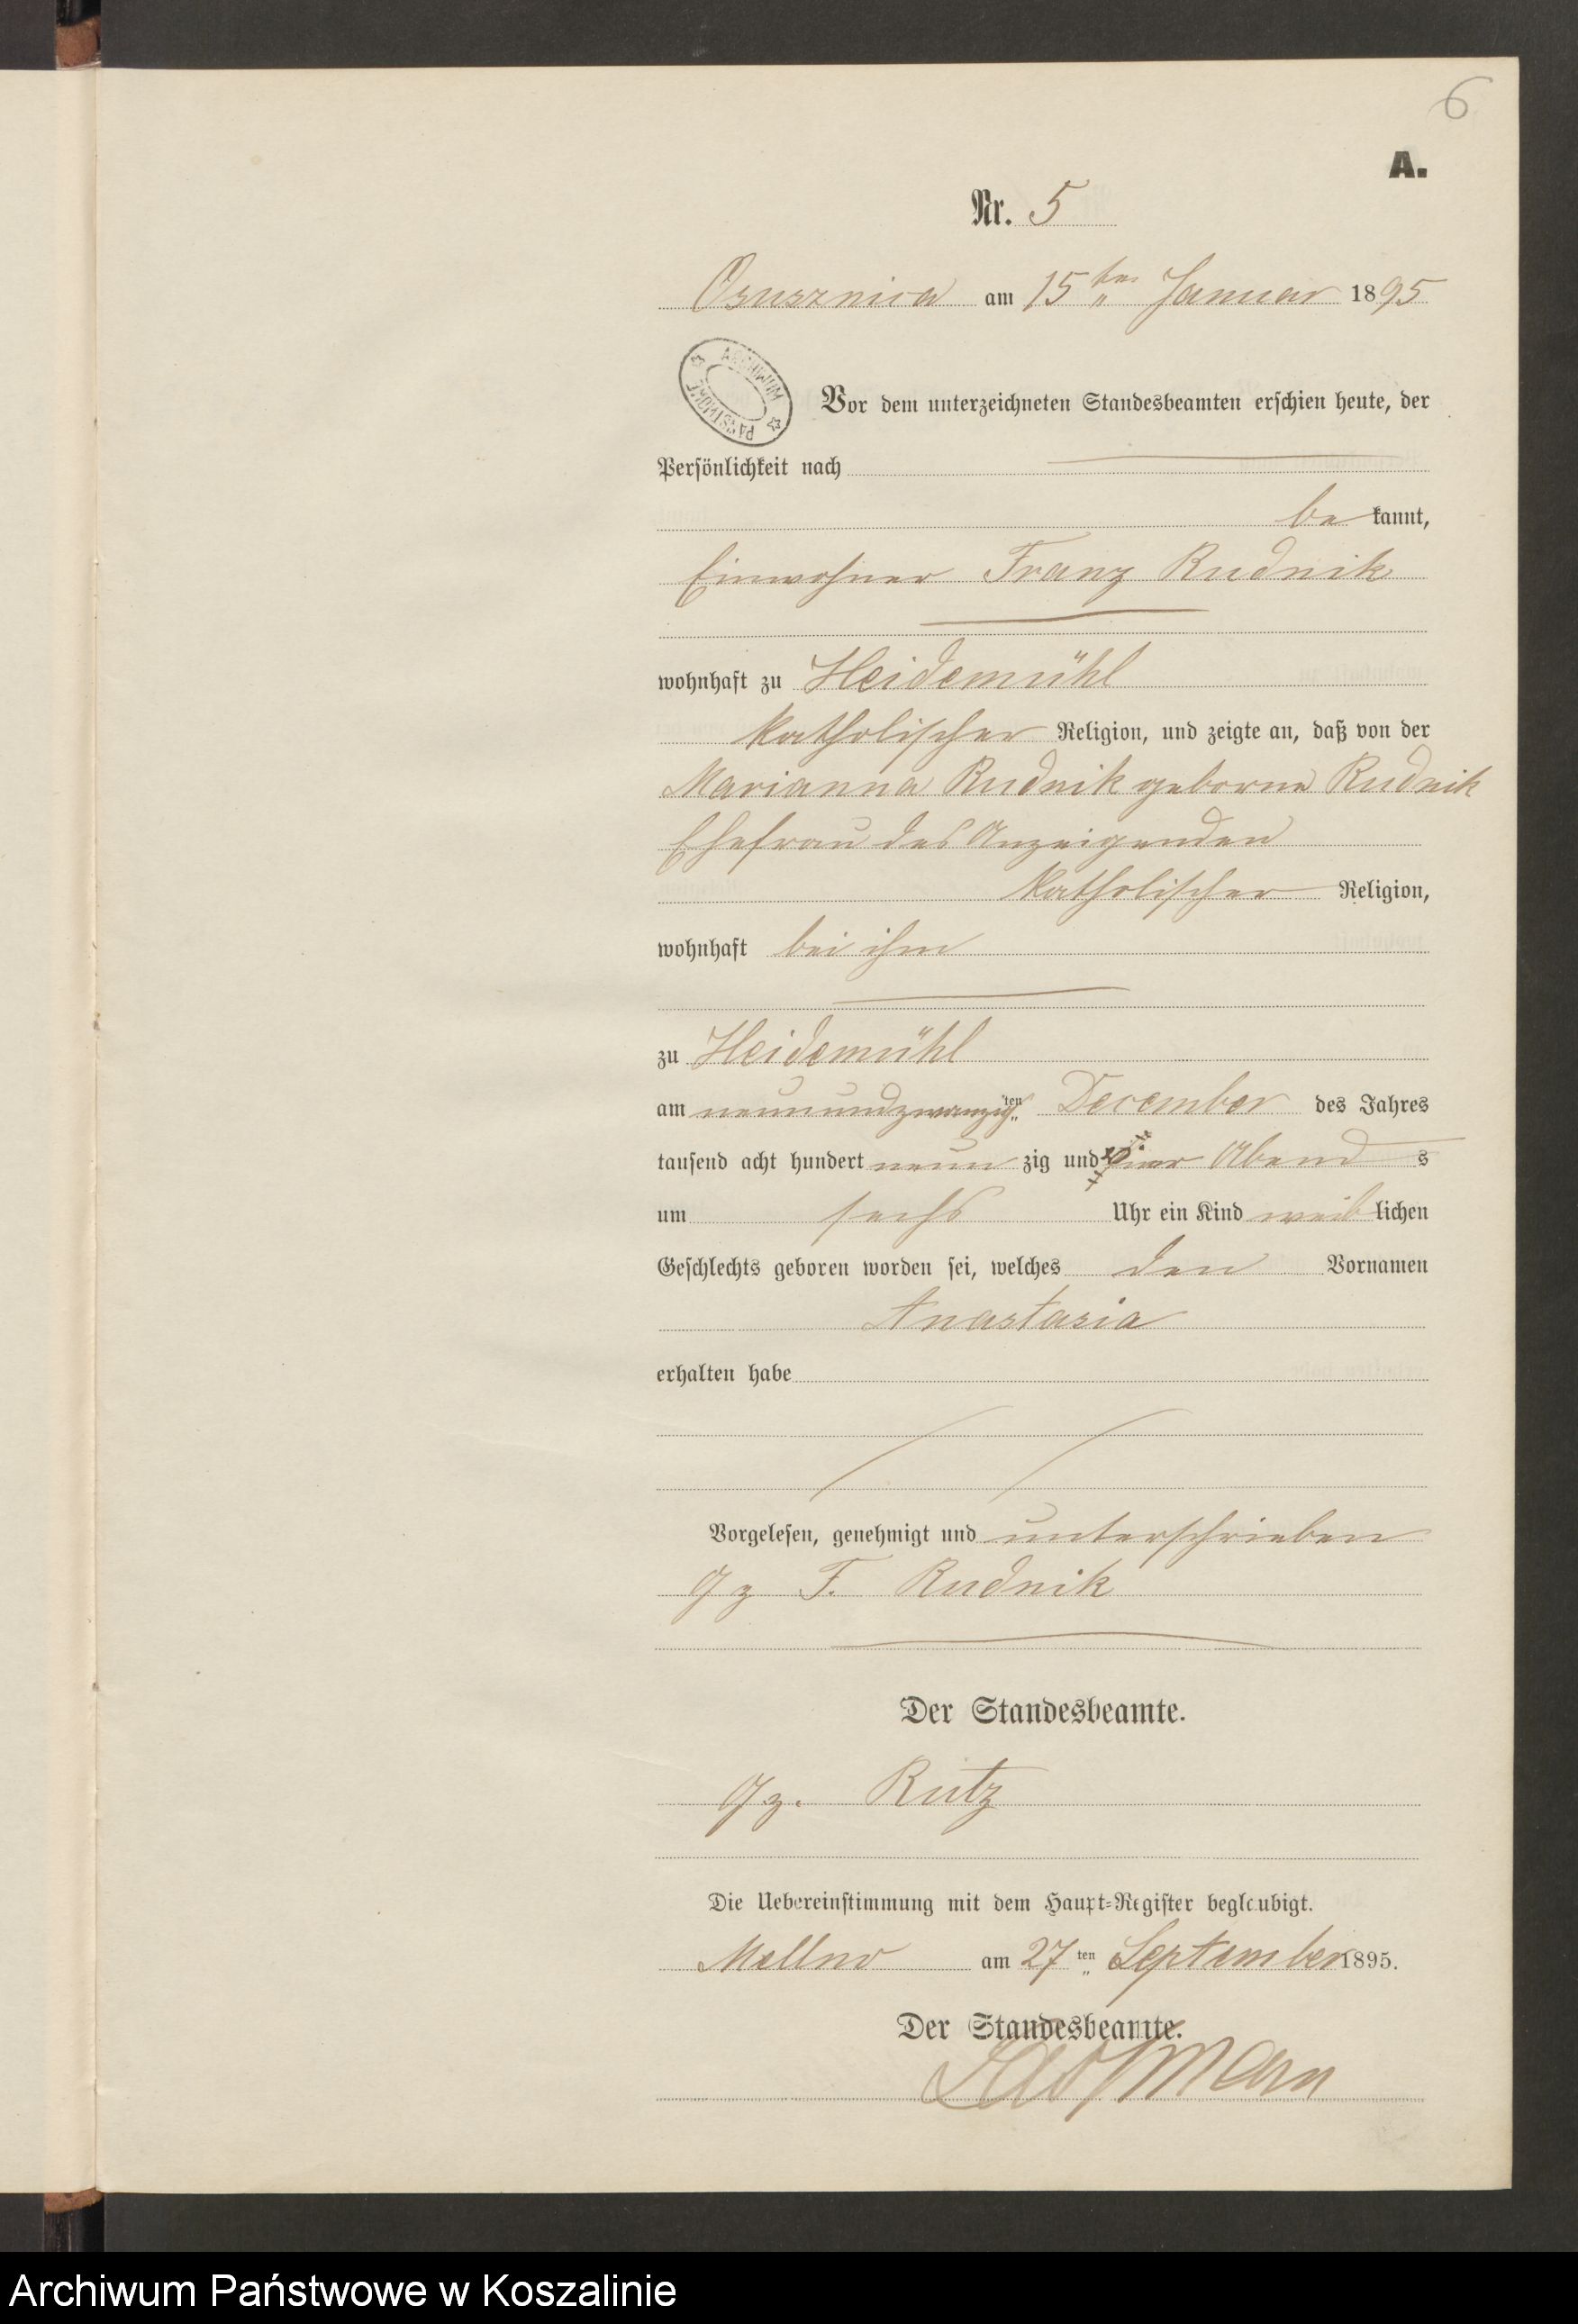 6
A.
Nr. 5
Osusznica am 15ten Januar 1895
ARCHIWUM PAŃSTWOWE
Vor dem unterzeichneten Standesbeamten erschien heute, der
Persönlichkeit nach
bekannt,
Einwohner Franz Rudnik
wohnhaft zu Heidemühl
katholischer Religion, und zeigte an, daß von der
Marianna Rudnik geborne Rudnik
Ehefrau des Anzeigenden
katholischer Religion,
wohnhaft bei ihm
zu Heidemühl
am neunundzwanzigten December des Jahres
tausend acht hundert neun zig und vier Abend s
um sechs Uhr ein Kind weiblichen
Geschlechts geboren worden sei, welches den Vornamen
Anastasia
erhalten habe
Vorgelesen, genehmigt und unterschrieben
gz F. Rudnik
Der Standesbeamte.
gz. Rutz
Die Uebereinstimmung mit dem Haupt-Register beglaubigt.
Mellno am 27ten September 1895.
Der Standesbeamte.
Archiwum Państwowe w Koszalinie